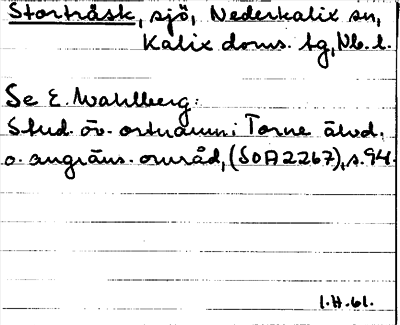 Storträsk, sjö, Nederkalix sn,
Kalix doms. tg, Nb. l.
Se E. Wahlberg:
Stud. öv. ortnamn i Torne älvd.
o. angräns. områd, (SOA 2267), s. 94.
I.H. 61.